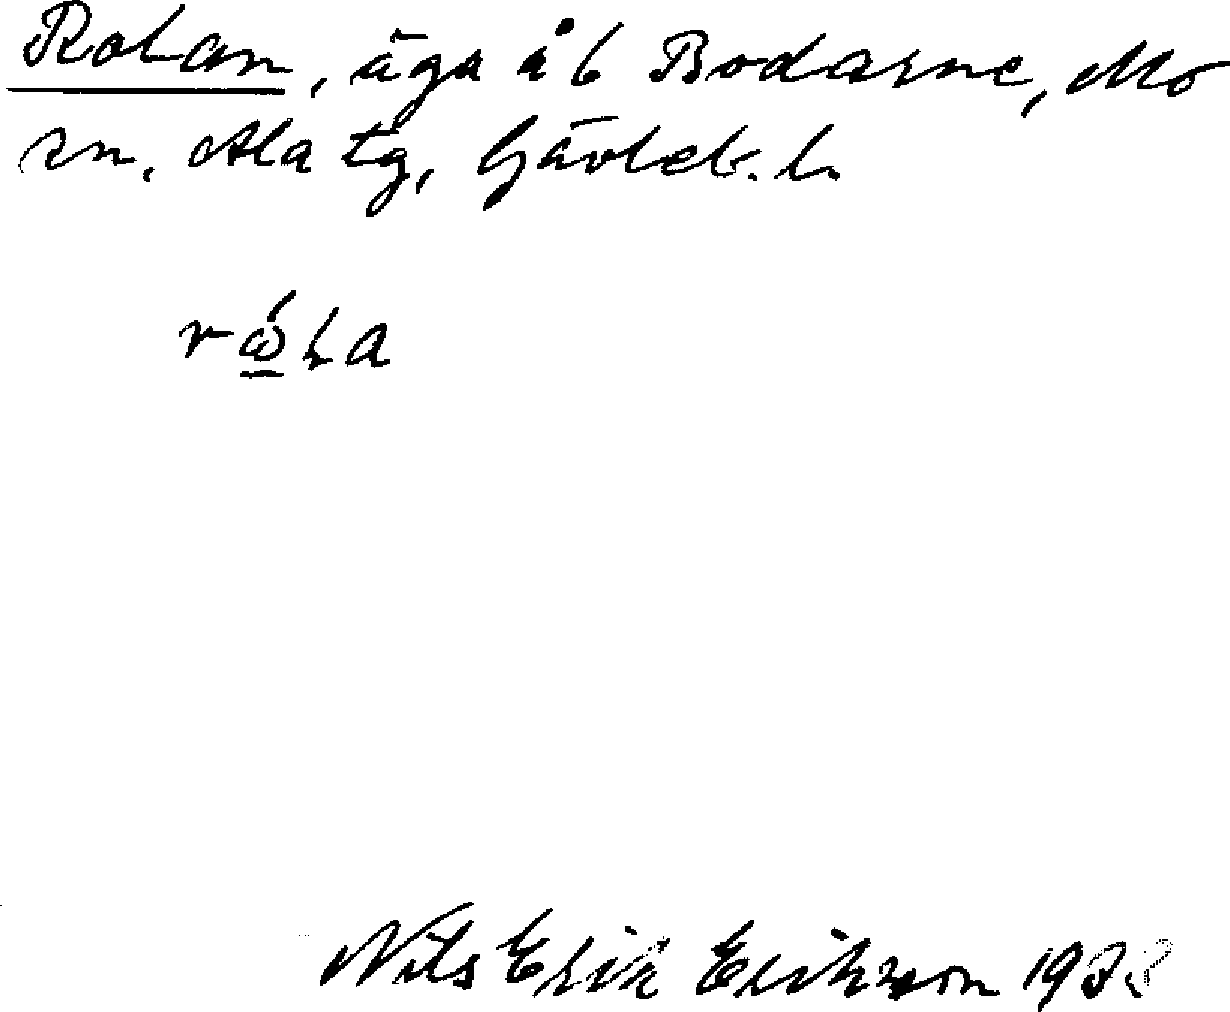 Rotan, äga å 6 Bodarne, Mo
sn. Ala tg, Gävleb. l.
Nils Erik Erikson